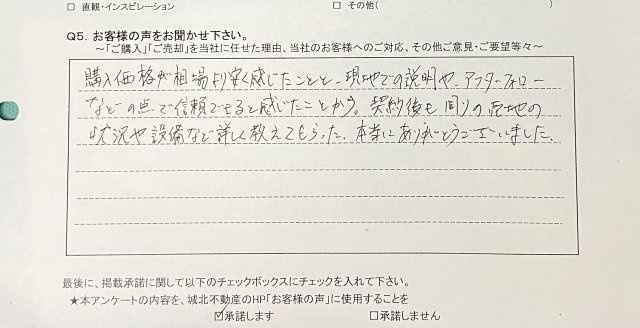 □ 直観・インスピレーション □ その他( )
Q5. お客様の声をお聞かせ下さい。
～「ご購入」「ご売却」を当社に任せた理由、当社のお客様へのご対応、その他ご意見・ご要望等々～
購入価格が相場より安く感じたことと、現地での説明や、アフターフォロー
などの点で信頼できると感じたことから。契約後も周りの売地の
状況や設備など詳しく教えてもらった。本当にありがとうございました。
最後に、掲載承諾に関して以下のチェックボックスにチェックを入れて下さい。
★本アンケートの内容を、城北不動産のHP「お客様の声」に使用することを
☑承諾します □承諾しません